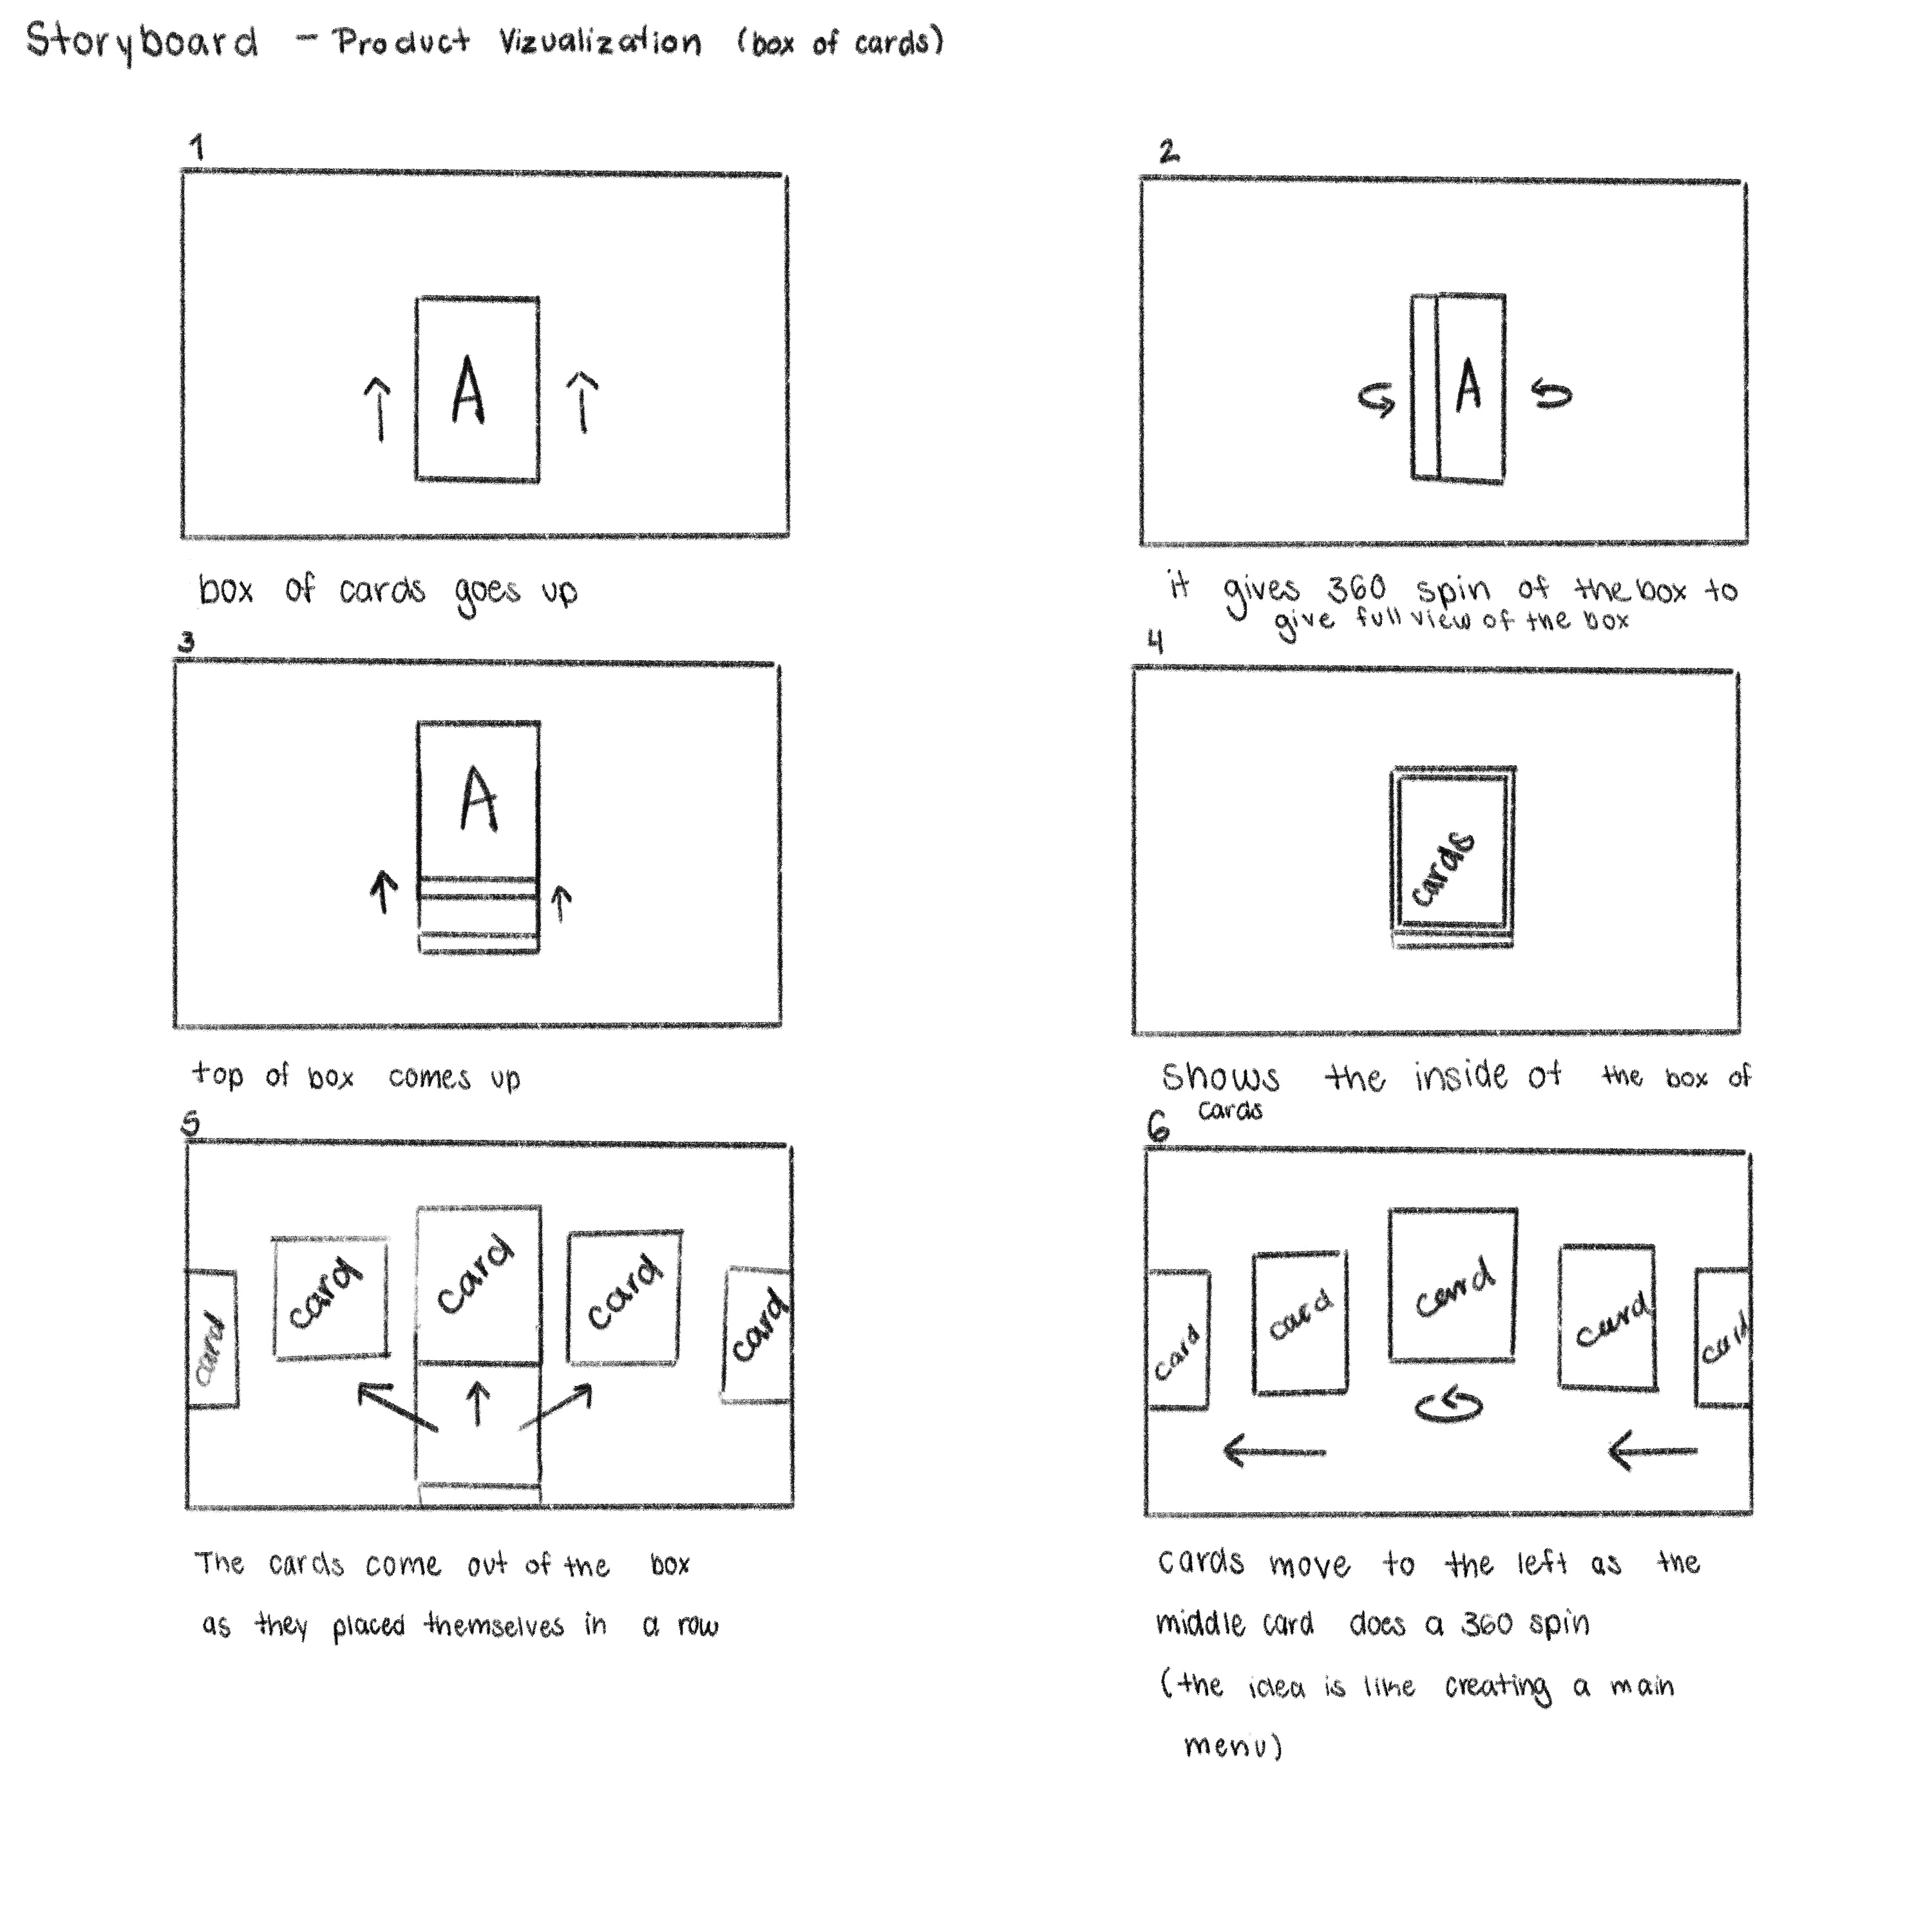 Storyboard - Product Vizualization (box of cards)
1
A
box of cards goes up
2
A
it gives 360 spin of the box to
give full view of the box
3
A
top of box comes up
4
cards
shows the inside of the box of
cards
5
card
card
card
card
card
The cards come out of the box
as they placed themselves in a row
6
card
card
card
card
card
cards move to the left as the
middle card does a 360 spin
(the idea is like creating a main
menu)